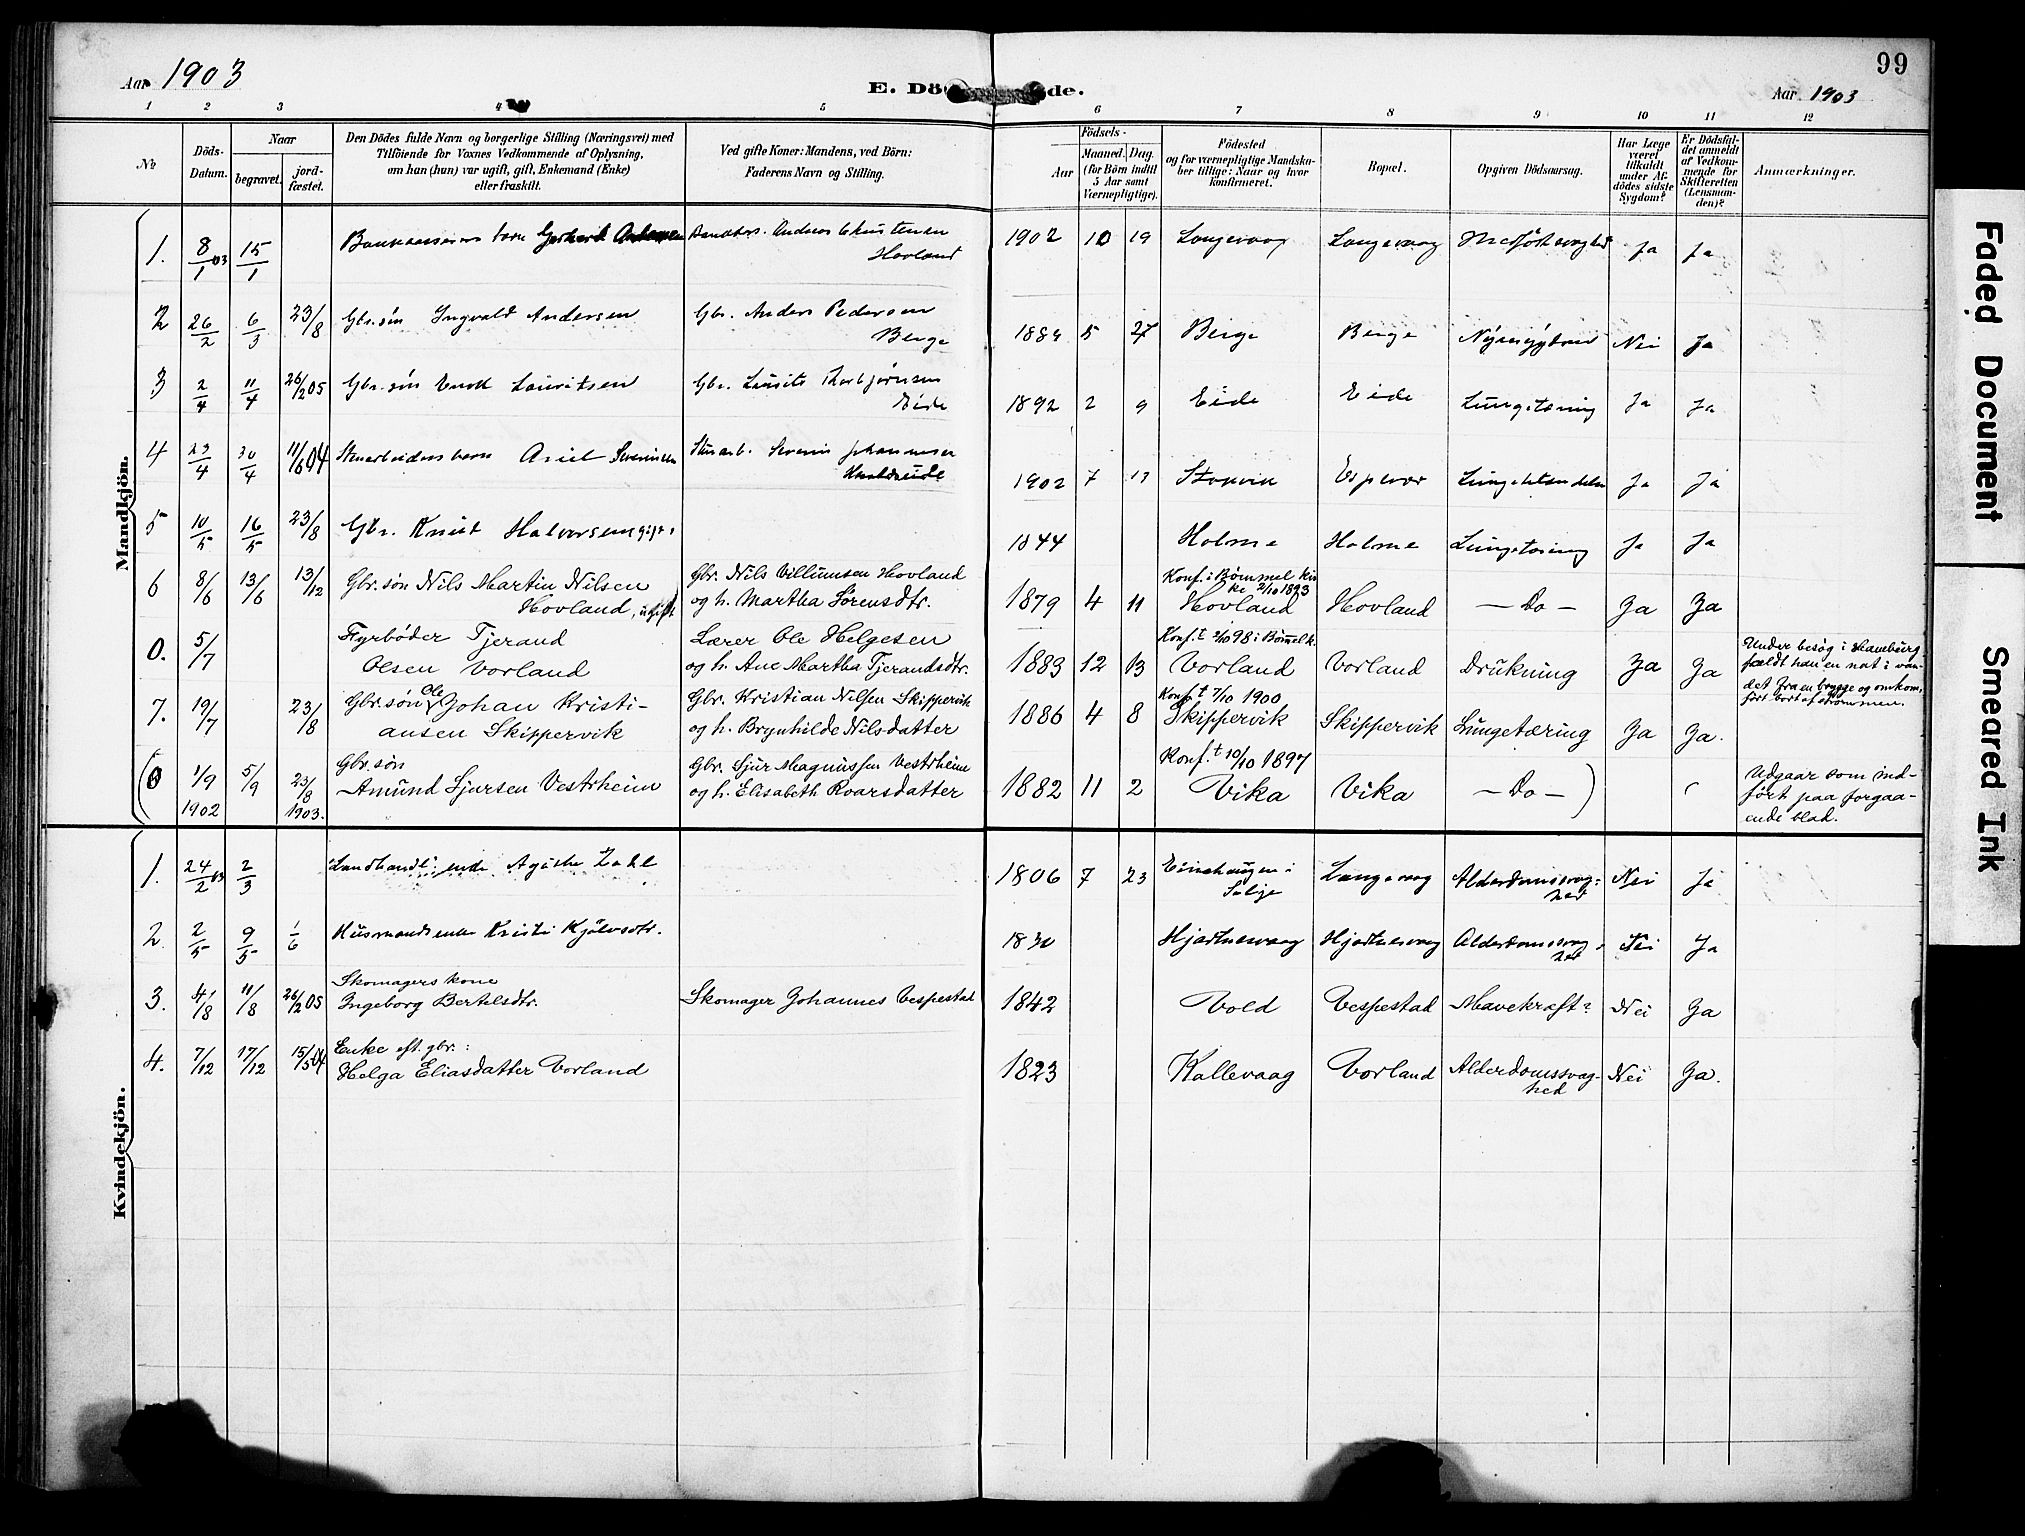 Aar 1903
E. Dö de.
Aar 1903
99
1 2 3 4 5 6 7 8 9 10 11 12
No
Döds-Datum.
Naar
begravet.
jord-fæstet.
Den Dödes fulde Navn og borgerlige Stilling (Næringsvei) med
Tilföiende for Voxnes Vedkommende af Oplysning,
om han (hun) var ugift, gift, Enkemand (Enke)
eller fraskilt.
Ved gifte Koner: Mandens, ved Börn:
Faderens Navn og Stilling.
Födsels-
Aar
Maaned.
Dag.
(for Börn indtil
5 Aar samt
Værnepligtige).
Födested
og for værnepligtige Mandska-
ber tillige: Naar og hvor
konfirmeret.
Bopæl.
Opgiven Dödsaarsag.
Har Læge
været
tilkaldt
under Af-
dödes sidste
Sygdom?
Er Dödsfal-
det anmeldt
af Vedkom-
mende for
Skifteretten
(Lensman-
den)?
Anmærkninger.
Mandkjön.
1. 8/1 03 15/1 Gerhard Andersen Anders Christensen Hovland 1902 10 19 Langevaag Langevaag Ja Ja
2 26/2 6/3 23/8 Gbr. søn Ingvald Andersen Gbr. Anders Pedersen Berge 5 27 Berge Berge Nei Ja
3 2/4 11/4 26/2 05 Gbr. søn Lauritsen Gbr. Thorbjørnsen Eide 1892 2 9 Eide Eide Lungetæring Ja Ja
4 23/4 30/4 11/6 04 Severinsen Severin Johannesen 1902 7 Stokvik Espevær Ja Ja
5 10/5 16/5 23/8 Gbr. Knut Halvorsen gift. 1844 Holme Holme Lungetæring Ja Ja
6 8/6 13/6 13/12 Gbr. søn Nils Martin Nilsen
Hovland, ugift
Gbr. Nils Villumsen Hovland
og h. Martha Sørensdtr.
1879 4 11 Konf. i Bømmel kir
ke 2/10 1893
Hovland Hovland — Do — Ja Ja
0. 5/7 Fyrbøder Tjerand
Olsen Vorland
Lærer Ole Helgesen
og h. Ane Martha Tjerandsdtr.
1883 12 13 Konf.t 2/10 98 i Bømmel k.
Vorland Vorland Drukning Ja Ja
Under besøg i Hamburg
faldt han en nat i van-
det fra en brygge og omkom,
ført bort af strømmen.
7. 19/7 23/8 Gbr. søn Ole Johan Kristi-
ansen Skippervik
Gbr. Kristian Nilsen Skippervik
og h. Brynhilde Nilsdatter
1886 4 8 Konf.t 7/10 1900
Skippervik Skippervik Lungetæring Ja Ja.
(0 1/9 1902 5/9 23/8 1903. Gbr. søn
Amund Sjursen Vestrheim
Gbr. Sjur Magnussen Vestrheim
og h. Elisabeth Roarsdatter
1882 11 2 Konf.t 10/10 1897
Vika Vika — Do — )
Udgaar som ind-
ført paa forgaa-
ende blad.
Kvindekjön.
1. 24/2 03 2/3 Agathe Zahl 1806 7 23 Langevaag Alderdomssvag-
hed Nei Ja
2. 2/5 9/5 1/6 Husmandsenke Kristi 1830 Hjortnesvaag Hjortnesvaag Alderdomssvag-
hed Nei Ja
3. 4/8 11/8 26/2 05 Skomagers kone
Ingeborg Bertelsdtr.
Skomager Johannes Vespestad
1842 Vold Vespestad Mavekræft Nei Ja
4. 7/12 17/12 15/5 04 Enke eft. gbr.:
Helga Eliasdatter Vorland
1823 Kallevaag Vorland Alderdomssvag-
hed Nei Ja.
Faded Document
Smeared Ink